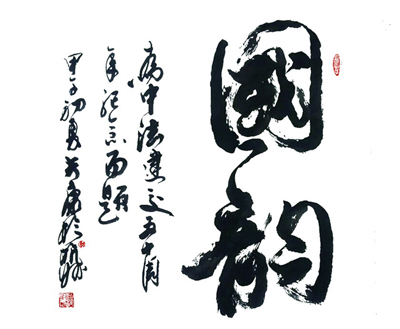 國韵
為中法建交五十周
年紀念而題
甲午初夏